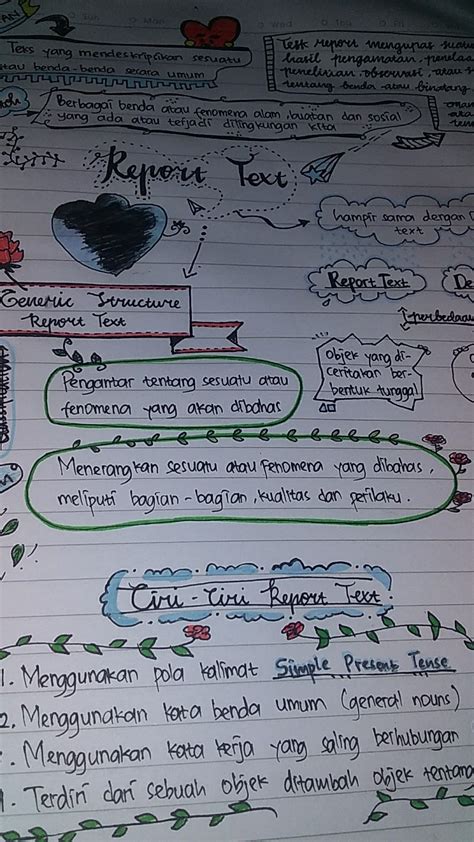 Teks yang mendeskripsikan sesuatu
atau benda-benda secara umum
Teks report mengupas
hasil pengamatan,
penelitian, observasi, atau
tentang benda atau binatang
Berbagai benda atau fenomena alam, buatan dan sosial
yang ada atau terjadi dilingkungan kita
Report Text
hampir sama dengan
text
Report Text
De
perbedaan
Generic Structure
Report Text
Objek yang di-
ceritakan ber-
bentuk tunggal
Pengantar tentang sesuatu atau
fenomena yang akan dibahas
Menerangkan sesuatu atau fenomena yang dibahas,
meliputi bagian-bagian, kualitas dan perilaku.
Ciri-Ciri Report Text
1. Menggunakan pola kalimat Simple Present Tense
2. Menggunakan kata benda umum (general nouns)
. Menggunakan kata kerja yang saling berhubungan
. Terdiri dari sebuah objek ditambah objek tentang